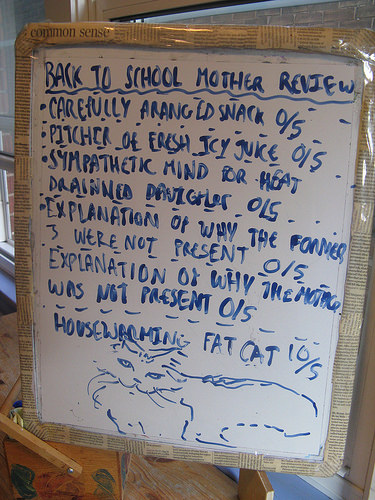 common sense
BACK TO SCHOOL MOTHER REVIEW
• CAREFULLY ARANGID SNACK 0/5
• PITCHER OF FRESH ICY JUICE 0/5
• SYMPATHETIC MIND FOR HEAT
DRAINNED DAUGHTER 0/5
• EXPLANATION OF WHY THE FORMER
3 WERE NOT PRESENT 0/5
EXPLANATION OF WHY THE MOTHER
WAS NOT PRESENT 0/5
HOUSEWARMING FAT CAT 10/5